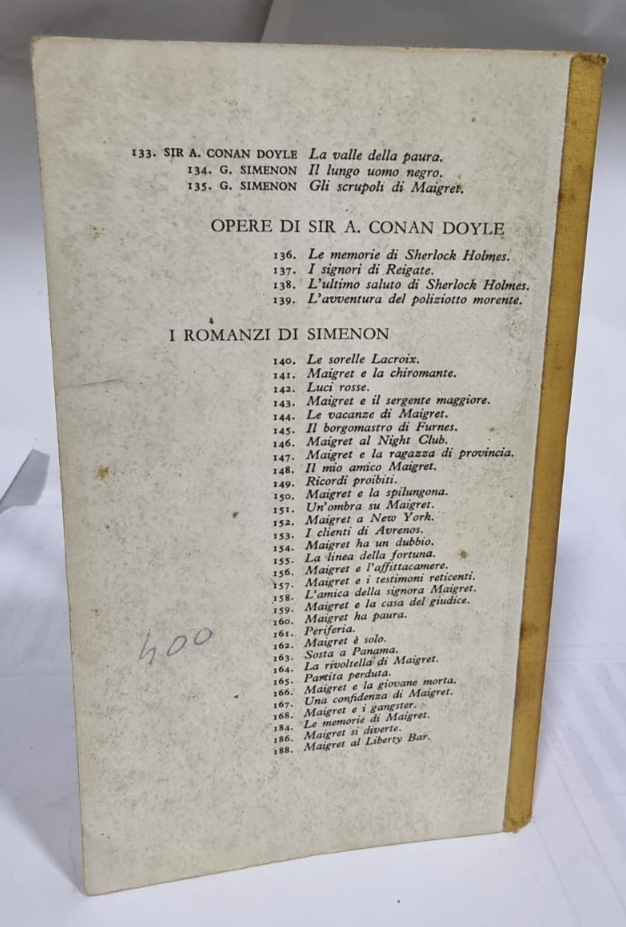 133. SIR A. CONAN DOYLE La valle della paura.
134. G. SIMENON Il lungo uomo negro.
135. G. SIMENON Gli scrupoli di Maigret.
OPERE DI SIR A. CONAN DOYLE
136. Le memorie di Sherlock Holmes.
137. I signori di Reigate.
138. L'ultimo saluto di Sherlock Holmes.
139. L'avventura del poliziotto morente.
I ROMANZI DI SIMENON
140. Le sorelle Lacroix.
141. Maigret e la chiromante.
142. Luci rosse.
143. Maigret e il sergente maggiore.
144. Le vacanze di Maigret.
145. Il borgomastro di Furnes.
146. Maigret al Night Club.
147. Maigret e la ragazza di provincia.
148. Il mio amico Maigret.
149. Ricordi proibiti.
150. Maigret e la spilungona.
151. Un'ombra su Maigret.
152. Maigret a New York.
153. I clienti di Avrenos.
154. Maigret ha un dubbio.
155. La linea della fortuna.
156. Maigret e l'affittacamere.
157. Maigret e i testimoni reticenti.
158. L'amica della signora Maigret.
159. Maigret e la casa del giudice.
160. Maigret ha paura.
161. Periferia.
162. Maigret è solo.
163. Sosta a Panama.
164. La rivoltella di Maigret.
165. Partita perduta.
166. Maigret e la giovane morta.
167. Una confidenza di Maigret.
168. Maigret e i gangster.
184. Le memorie di Maigret.
186. Maigret si diverte.
188. Maigret al Liberty Bar.
400